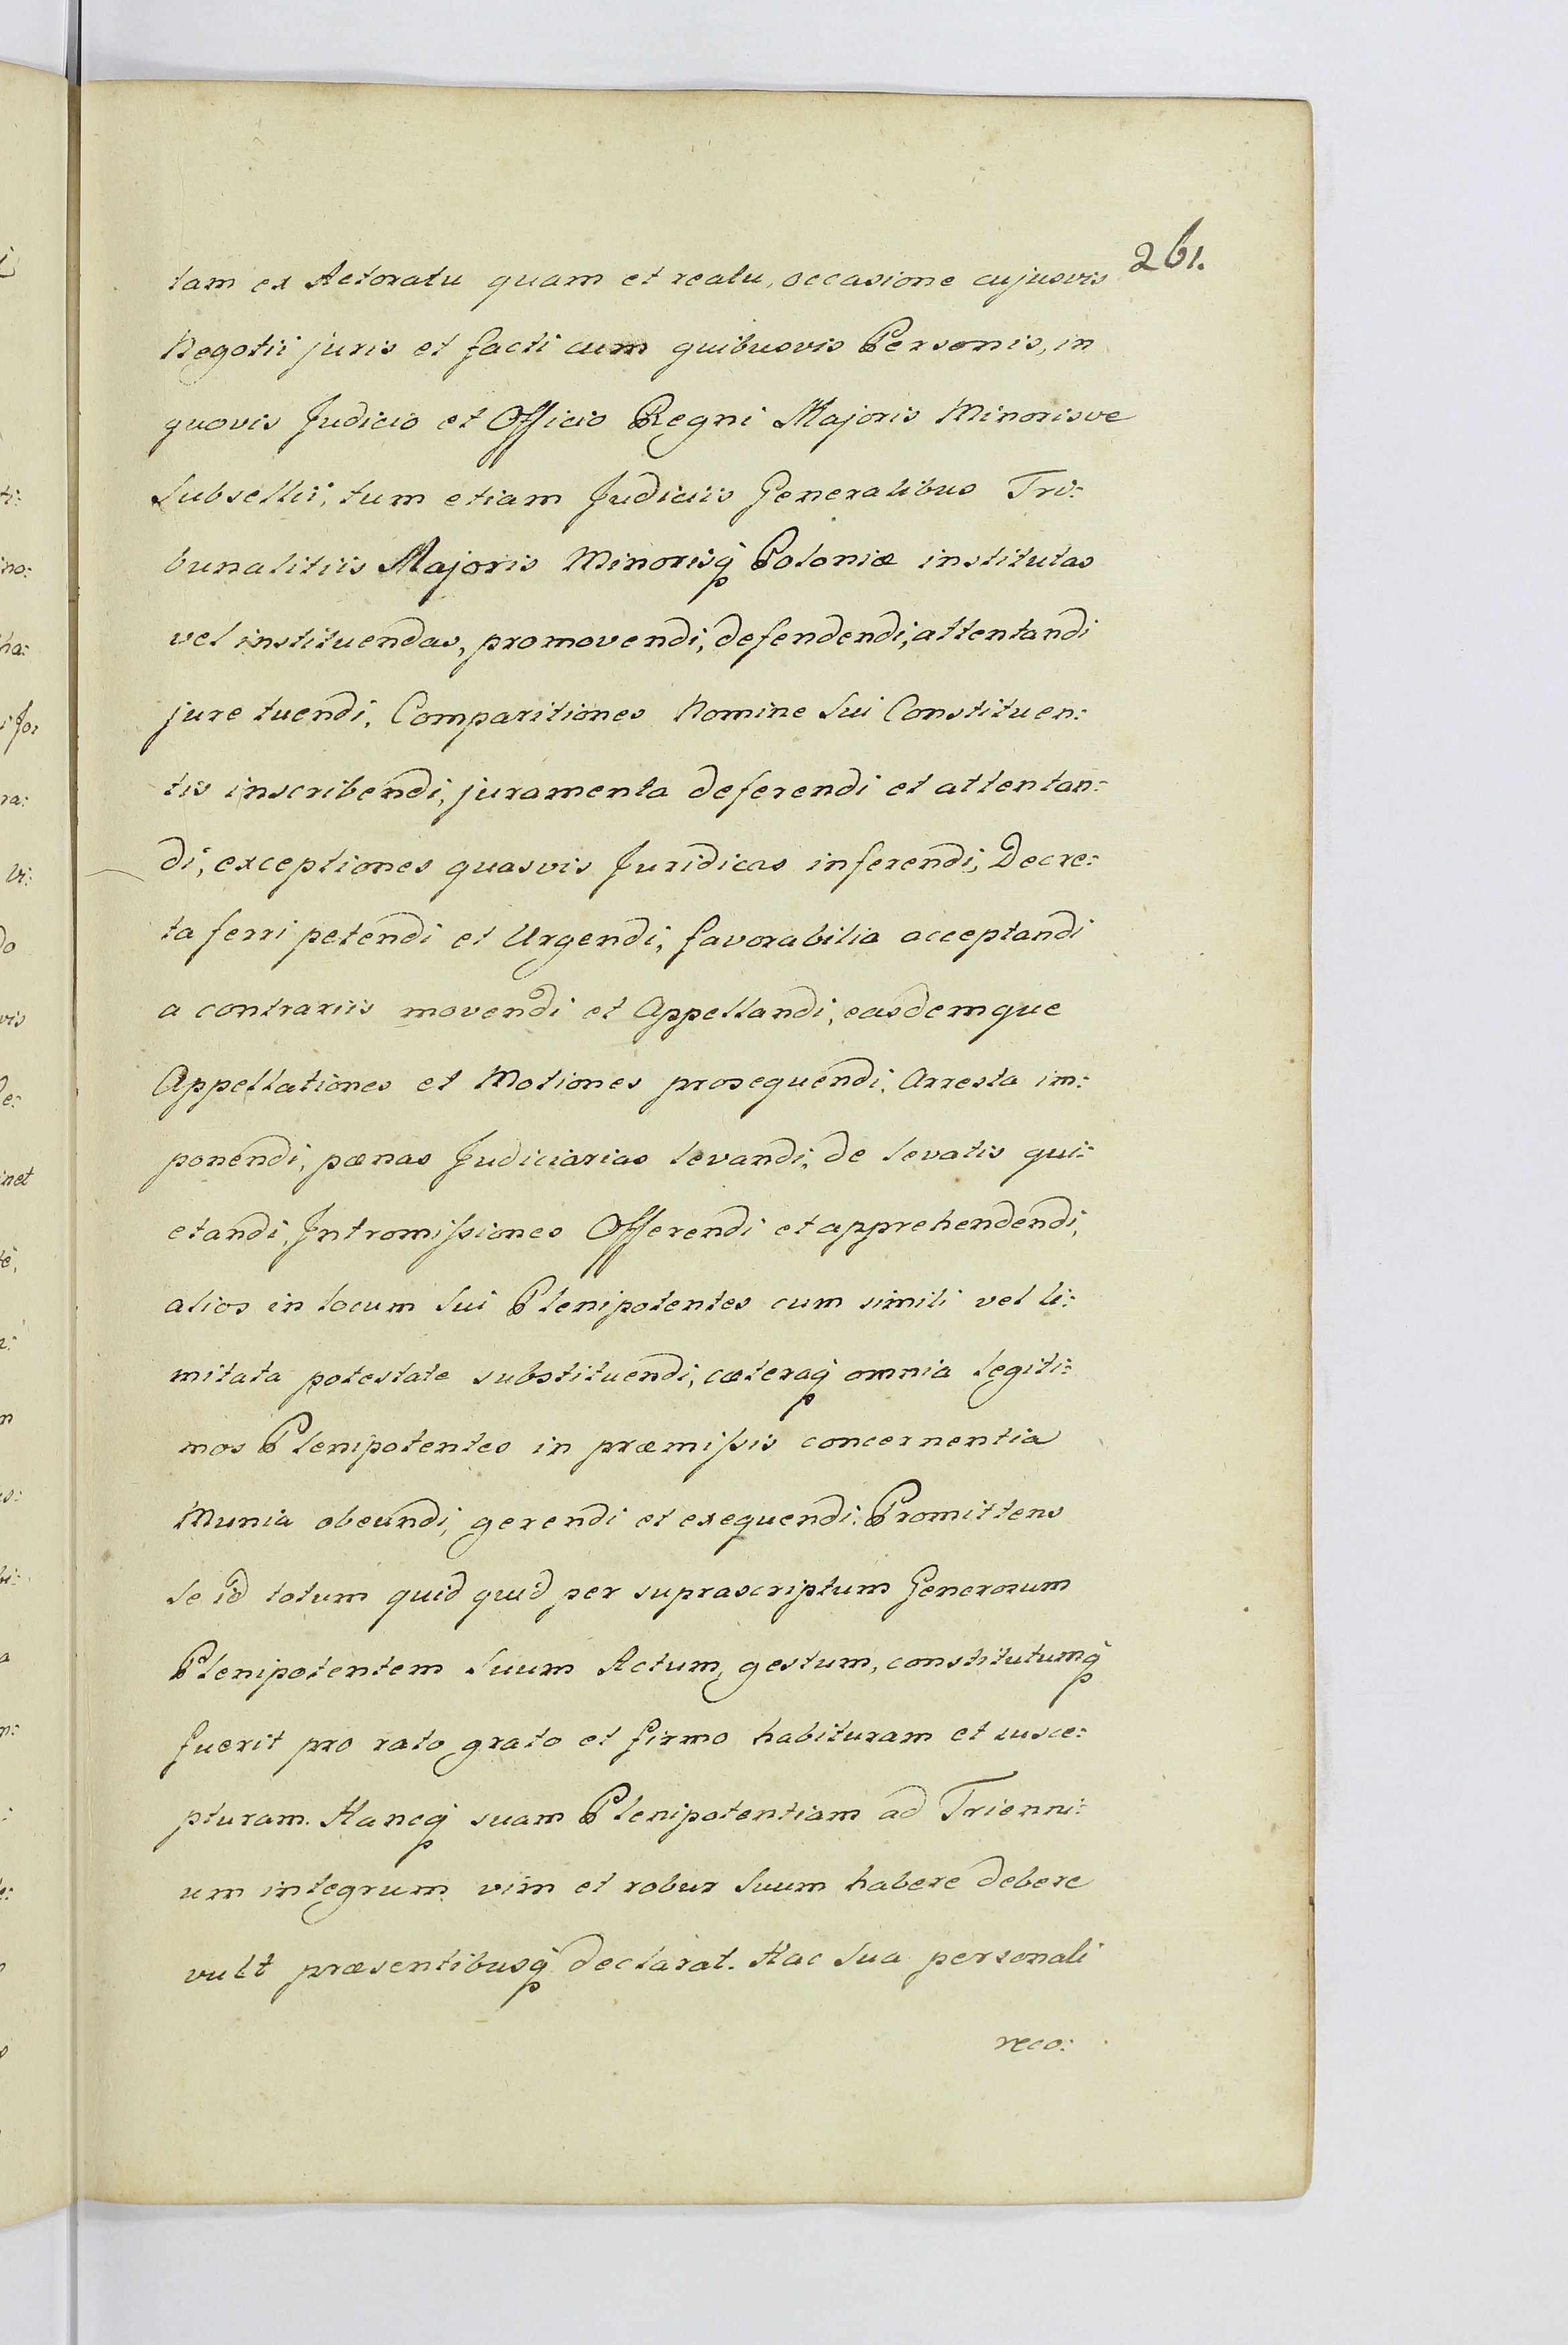 261.
tam ex Actoratu quam et reatu, occasione cujusvis
Negotii juris et facti cum quibusvis Personis, in
quovis Judicio et Officio Regni Majoris Minorisve
Subsellii, tum etiam Judiciis Generalibus Tri:
bunalitiis Majoris Minorisq Poloniæ institutas
vel instituendas, promovendi, defendendi, attentandi
jure tuendi, Comparitiones Nomine Sui Constituen:
tis inscribendi, juramenta deferendi et attentan:
di, exceptiones quasvis Juridicas inferendi, Decre:
ta ferri petendi et Urgendi, favorabilia acceptandi
a contrariis movendi et Appellandi, easdemque
Appellationes et Motiones prosequendi, Arresta im:
ponendi, pœnas Judiciarias levandi, de levatis qui:
etandi, Intromissiones Offerendi et apprehendendi,
alios in locum Sui Plenipotentes cum simili vel li:
mitata potestate substituendi, cæteraq omnia legiti:
mos Plenipotentes in præmissis concernentia
Munia obeundi, gerendi et exequendi. Promittens
Se id totum quid quid per suprascriptum Generosum
Plenipotentem Suum Actum, gestum, constitutumq
fuerit pro rato grato et firmo habituram et susce:
pturam. Hancq suam Plenipotentiam ad Trienni:
um integrum vim et robur Suum habere debere
vult præsentibusq declarat. Hac Sua personali
reco: